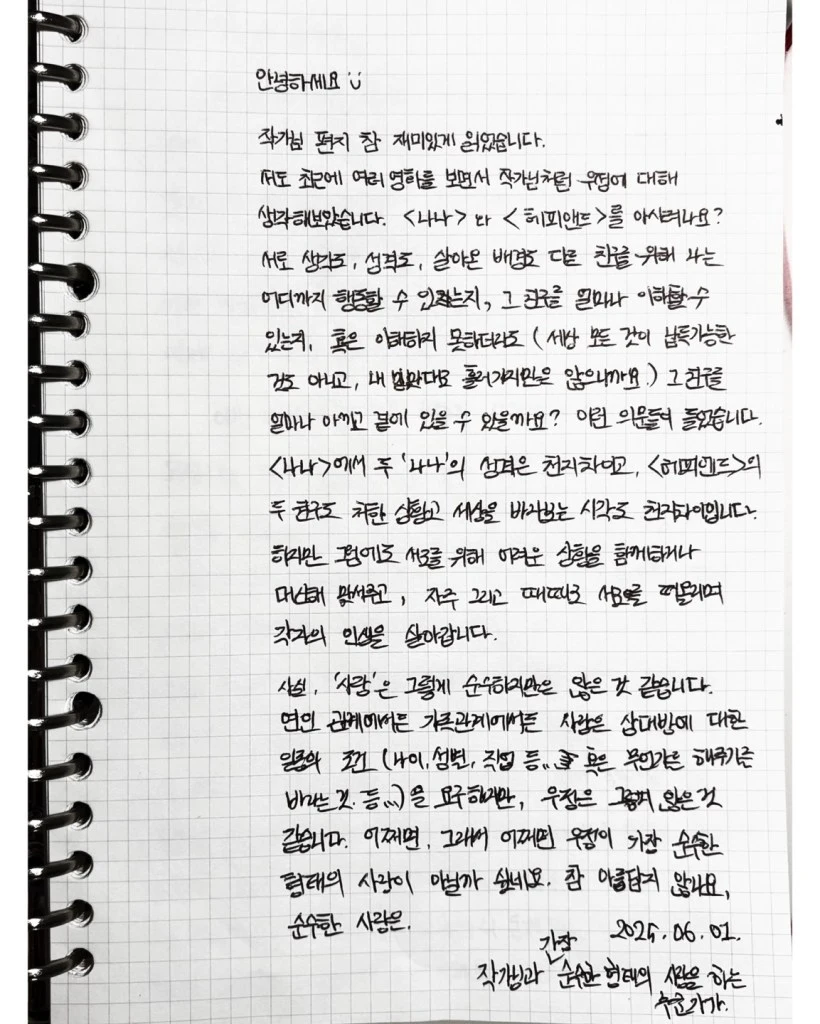 안녕하세요 ⍨
작가님 편지 참 재미있게 읽었습니다.
저도 최근에 여러 영화를 보면서 작가님처럼 우정에 대해
생각해보았습니다. <나나> 나 <해피엔드>를 아시려나요?
서로 생각도, 성격도, 살아온 배경도 다른 친구를 위해 나는
어디까지 행동할 수 있는지, 그 친구를 얼마나 이해할 수
있는지, 혹은 이해하지 못하더라도 (세상 모든 것이 납득가능한
것도 아니고, 내 맘대로 흘러가지만은 않으니까요.) 그 친구를
얼마나 아끼고 곁에 있을 수 있을까요? 이런 의문들이 들었습니다.
<나나>에서 두 '나나'의 성격은 천지차이고, <해피엔드>의
두 친구도 처한 상황과 세상을 바라보는 시각도 천지차이입니다.
하지만 그럼에도 서로를 위해 어려운 상황을 함께하거나
대신해 맞서주고, 자주 그리고 때때로 서로를 떠올리며
각자의 인생을 살아갑니다.
사실, '사랑'은 그렇게 순수하지만은 않은 것 같습니다.
연인 관계에서든 가족관계에서든 사람은 상대방에 대한
일정의 조건 (나이, 성별, 직업 등... 혹은 무언가를 해주기를
바라는 것. 등...)을 요구하지만, 우정은 그렇지 않은 것
같습니다. 어쩌면, 그래서 어쩌면 우정이 가장 순수한
형태의 사랑이 아닐까 싶네요. 참 아름답지 않나요,
순수한 사랑은.
2025. 06. 01.
작가님과 가장 순수한 형태의 사랑을 하는